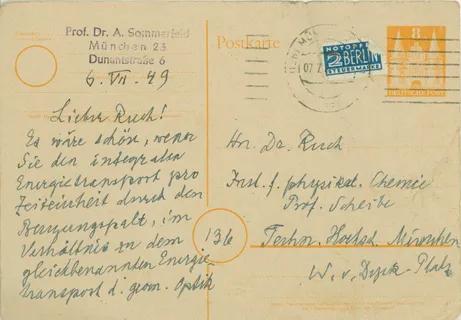 Prof. Dr. A. Sommerfeld
München 23
Dunantstraße 6
6. VII. 49
Lieber Ruch!
Es wäre schön, wenn
Sie den integralen
Energietransport pro
Zeiteinheit durch den
Beugungsspalt, im
Verhältnis zu dem
gleichbenannten Energie-
transport d. geom. Optik
Postkarte
NOTOPFER
2 BERLIN
STEUERMARKE
8
DEUTSCHE POST
Hn. Dr. Ruch
Inst. f. physikal. Chemie
Prof. Scheibe
136
Techn. Hochsch. München
W. v. Dyck Platz